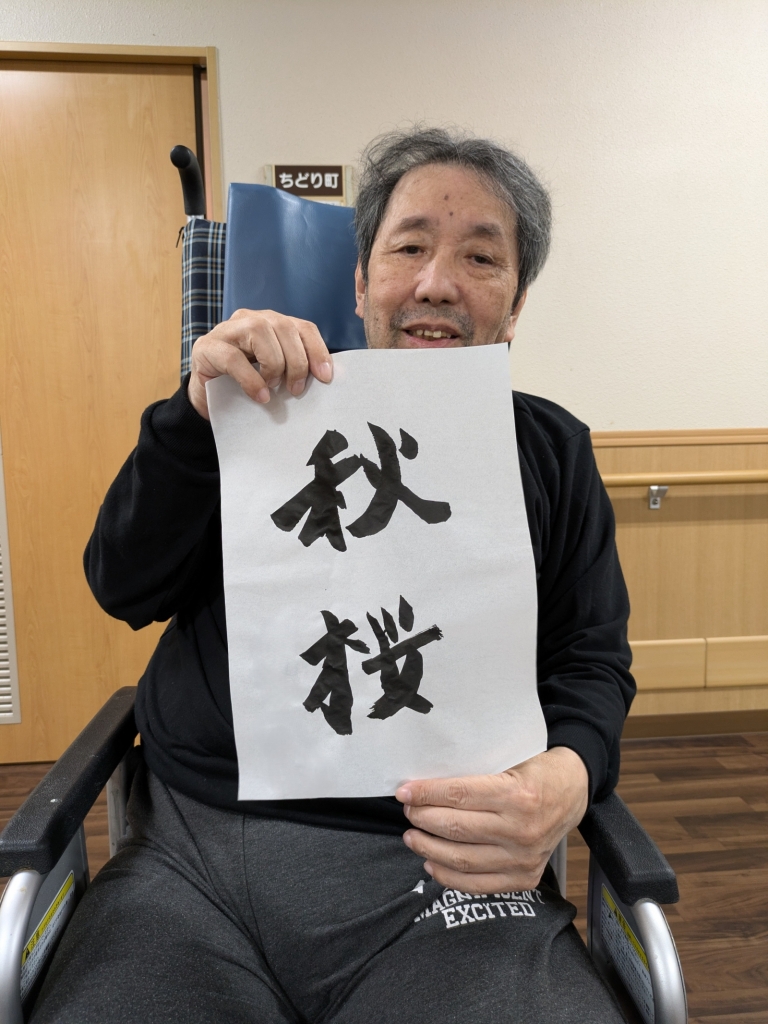 ちどり町
秋
桜
MAGNIFICENT
EXCITED